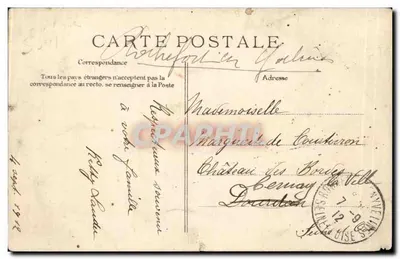 Rochefort en Yvelines
CARTE POSTALE
Correspondance
Adresse
Tous les pays étrangers n'acceptent pas la
correspondance au recto. se renseigner à la Poste
Respectueux souvenir
à votre famille
4 sept 1912
Mademoiselle
Marguerite de
Château des Bordes
Cernay la Ville
Dourdan
Seine
7 - 9
12
OISE